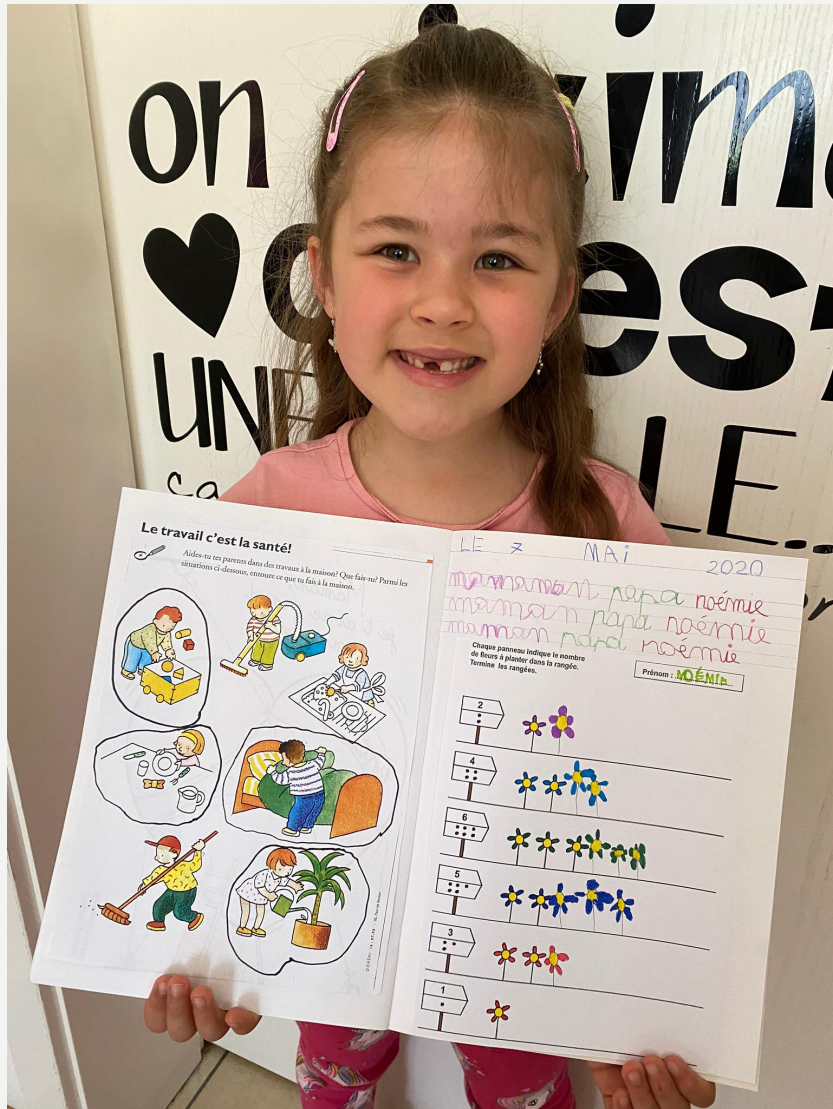 on
UNE
LE...
ça
Le travail c'est la santé!
Aides-tu tes parents dans des travaux à la maison? Que fais-tu? Parmi les
situations ci-dessous, entoure ce que tu fais à la maison.
LE 7 MAI 2020
mamaman papa noémie
maman papa noémie
maman papa noémie
Chaque panneau indique le nombre
de fleurs à planter dans la rangée.
Termine les rangées.
Prénom : NOÉMIE
2
4
6
5
3
1